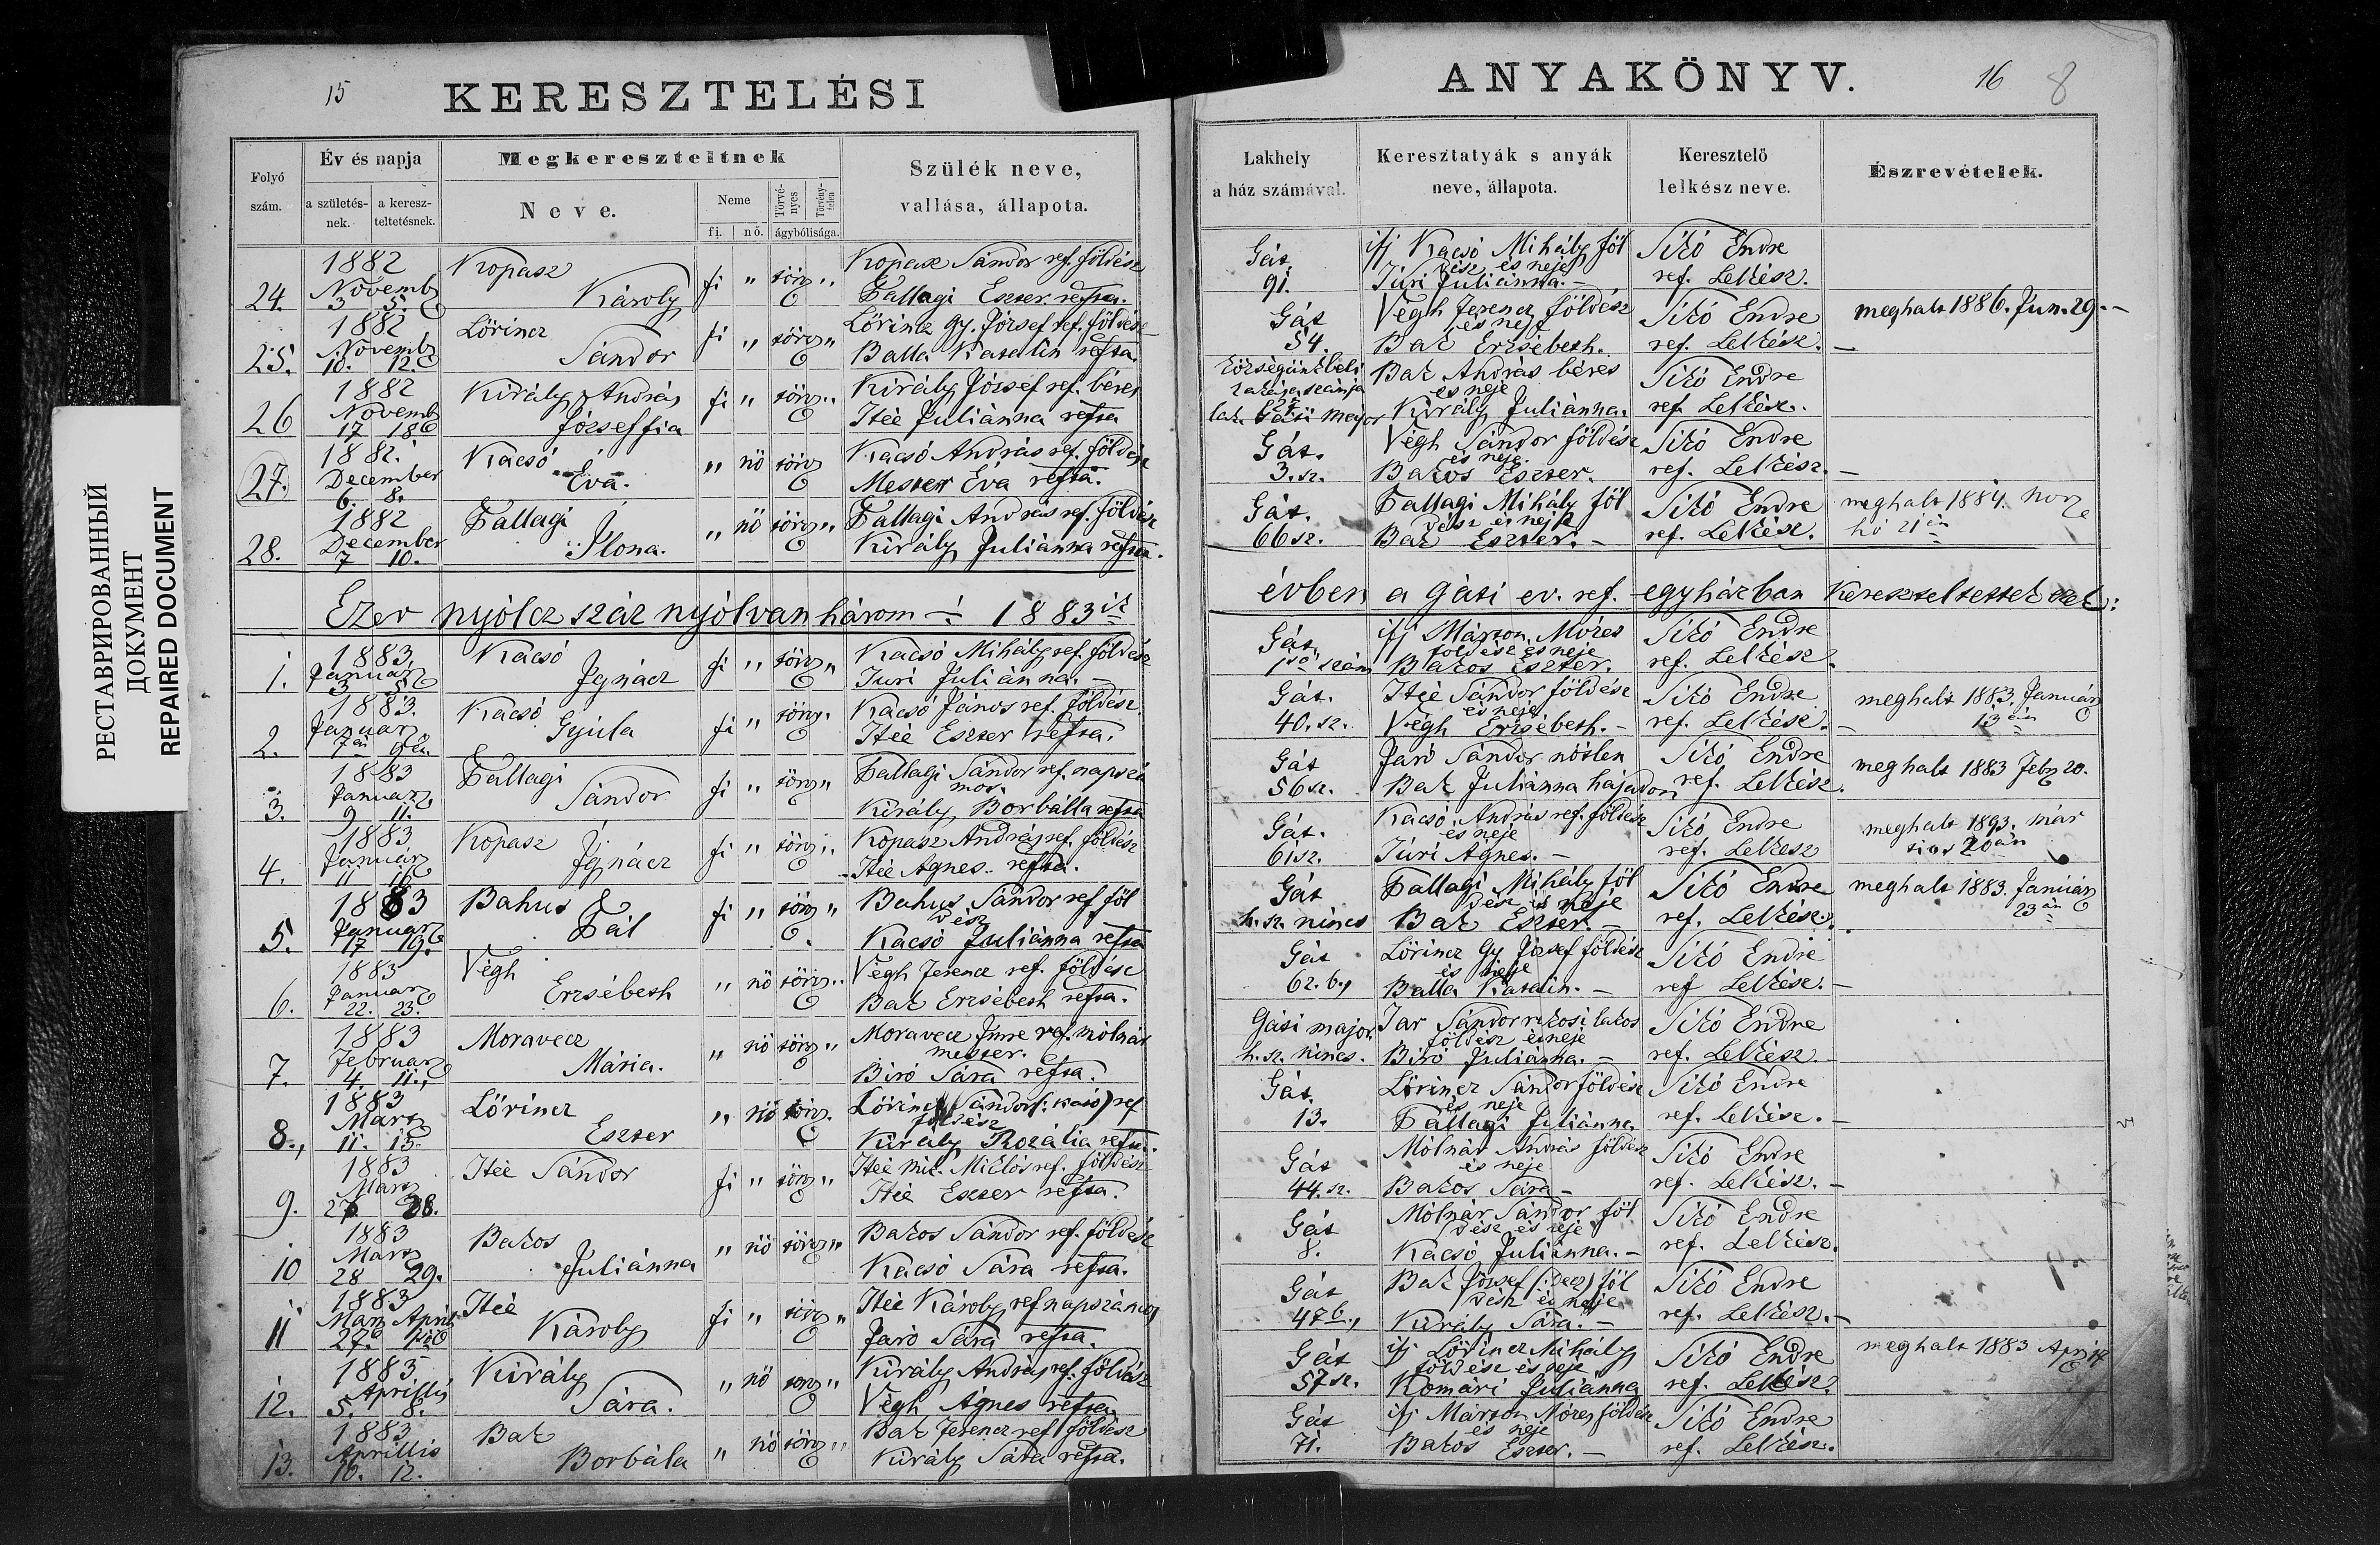 15
KERESZTELÉSI
ANYAKÖNYV.
16
8
РЕСТАВРИРОВАННЫЙ
ДОКУМЕНТ
REPAIRED DOCUMENT
Folyó
szám.
Év és napja
a születés-
nek.
a keresz-
teltetésnek.
Megkereszteltnek
Neve.
Neme
fi.
nő.
Törvé-
nyes
Törvény-
telen
ágybólisága.
Szülék neve,
vallása, állapota.
Lakhely
a ház számával.
Keresztatyák s anyák
neve, állapota.
Keresztelő
lelkész neve.
Észrevételek.
24.
1882
Novemb
3 5.
Kopasz
Károly
fi " törv "
Kopasz Sándor ref. földész
Fallagi Eszter refta.
Gát
91.
ifj Kacsó Mihály föl
dész és neje
Juri Juliánna. –
Sikó Endre
ref. Lelkész.
25.
1882
Novemb
10. 12.
Lörincz
Sándor
fi " törv "
Lörincz Gy. József ref. földész
Balla Katalin refta.
Gát
54.
Végh Ferencz földész
és neje
Bak Erzsébeth.
Sikó Endre
ref. Lelkész. –
meghalt 1886. Jun. 29. –
26
1882
Novemb
17 18
Király András
József fia
fi " törv "
Király József ref. béres
Itée Juliánna refta
községünkbeli
Gáti major
Bak András béres
és neje
Király Juliánna.
Sikó Endre
ref. Lelkész.
27.
1882.
December
6. 8.
Kacsó
Éva.
" nö törv
Kacsó András ref. földész
Mester Éva refta.
Gát.
3. sz.
Végh Sándor földész
és neje.
Bakos Eszter.
Sikó Endre
ref. Lelkész. –
28.
1882
December
7 10.
Fallagi
Ilona.
" nö törv "
Fallagi András ref. földész
Király Juliánna refta.
Gát.
66 sz.
Fallagi Mihály föl
dész és neje
Bak Eszter. –
Sikó Endre
ref. Lelkész.
meghalt 1884. Nov
hó 21 én
Ezer nyólcz száz nyólvan három ÷ 1883 ik
évben a gáti ev. ref. egyházban Kereszteltettek ezek:
1.
1883.
Januar
3 5
Kacsó
Ignácz
fi " törv "
Kacsó Mihály ref. földész
Juri Juliánna. –
Gát
1ső szám
ifj Márton Mózes
földész és neje
Bakos Eszter.
Sikó Endre
ref. Lelkész.
2.
1883.
Januar
7én 9én
Kacsó
Gyula
fi " törv.
Kacsó János ref. földész.
Itée Eszter refta.
Gát.
40. sz.
Itée Sándor földész
és neje
Végh Erzsébeth. –
Sikó Endre
ref. Lelkész. –
meghalt 1883. Január
13 án
3.
1883
Januar
9 11.
Fallagi
Sándor
fi " törv "
Fallagi Sándor ref. napszá
mos.
Király Borbálla refta
Gát
56 sz.
Jaró Sándor nőtlen
Bak Juliánna hajadon
Sikó Endre
ref. Lelkész.
meghalt 1883 Febr 20.
4.
1883
Január
11 16
Kopasz
Ignácz
fi " törv "
Kopasz András ref. földész
Itée Agnes. refta.
Gát.
61 sz.
Kacsó András ref. földész
és neje
Juri Agnes. –
Sikó Endre
ref. Lelkesz
meghalt 1893. már
tius 20 án
5.
1883
Januar
17 19.
Bahus
Pál
fi " törv "
Bahus Sándor ref föl
dész
Kacsó Juliánna refta
Gát
h. sz. nincs
Fallagi Mihály föl
dész és neje
Bak Eszter. –
Sikó Endre
ref. Lelkész.
meghalt 1883. Január
23 án
6.
1883
Januar
22. 23.
Végh
Erzsébeth
" nö törv "
Végh Ferencz ref. földész
Bak Erzsébeth refta.
Gát
62. b.,
Lörincz Gy József földész
és neje
Balla Katalin. –
Sikó Endre
ref Lelkész. –
7.
1883
Februar
4. 11.,
Moravecz
Mária.
" nö törv "
Moravecz Imre ref. mólnár
mester.
Biró Sára refta.
Gáti major
h. sz. nincs.
Jar Sándor rákosi lakos
földész és neje
Biró Juliánna. –
Sikó Endre
ref. Lelkész. –
8.,
1883
Marz
11. 15.
Lörincz
Eszter
" nö törv.
földész
Király Rozália refta.
Gát
13.
Lörincz Sándor földész
és neje
Fallagi Juliánna
Sikó Endre
ref. Lelkész. –
9.
1883
Marz
27 28.
Itée Sándor
fi " törv "
Itée Mik. Miklós ref. földész
Itée Eszter refta.
Gát
44. sz.
Mólnár András földész
és neje
Bakos Sára –
Sikó Endre
ref. Lelkész. –
10
1883
Marz
28 29.
Bakos
Juliánna
" nö törv "
Bakos Sándor ref. földész
Kacsó Sára refta.
Gát
8.
Mólnár Sándor föl
dész és neje
Kacsó Juliánna. –
Sikó Endre
ref. Lelkész.
11
1883
Marz April
27. 1ső
Itée
Károly
fi " törv "
Itée Károly ref napszámos
Jaró Sára refta.
Gát
47 b.,
Bak József (:Decz) föl
dész és neje
Király Sára. –
Sikó Endre
ref. Lelkész. –
12.
1883
Aprillis
5. 8.
Király
Sára.
" nö törv "
Király András ref. földész
Végh Ágnes refta
Gát
57 sz.
ifj Lörincz Mihály
földész és neje
Komári Juliánna
Sikó Endre
ref. Lelkész.
meghalt 1883 Apr 14
13.
1883
Aprillis
10. 12.
Bak
Borbála
" nö törv "
Bak Ferencz ref földész
Király Sára refta.
Gát
71.
ifj Márton Mózes földész
és neje
Bakos Eszter. –
Sikó Endre
ref. Lelkész.